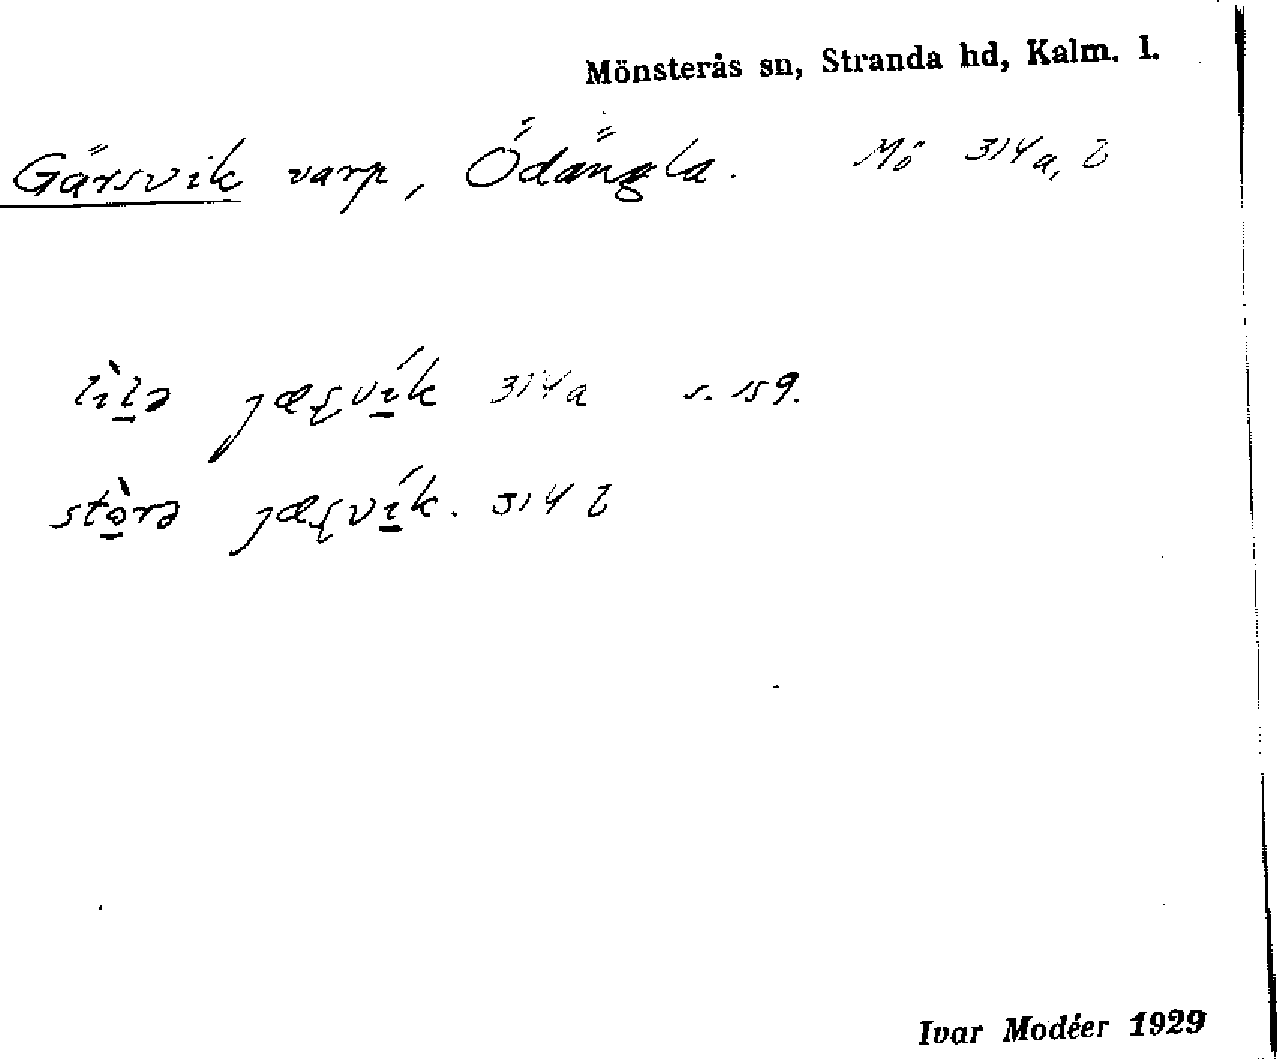 Mönsterås sn, Stranda hd, Kalm. l.
Gärsvik varp, Ödängla. Mö 314a, b
lìlə jæʂvík 314a s. 159.
stòrə jæʂvík. 314 b
Ivar Modéer 1929